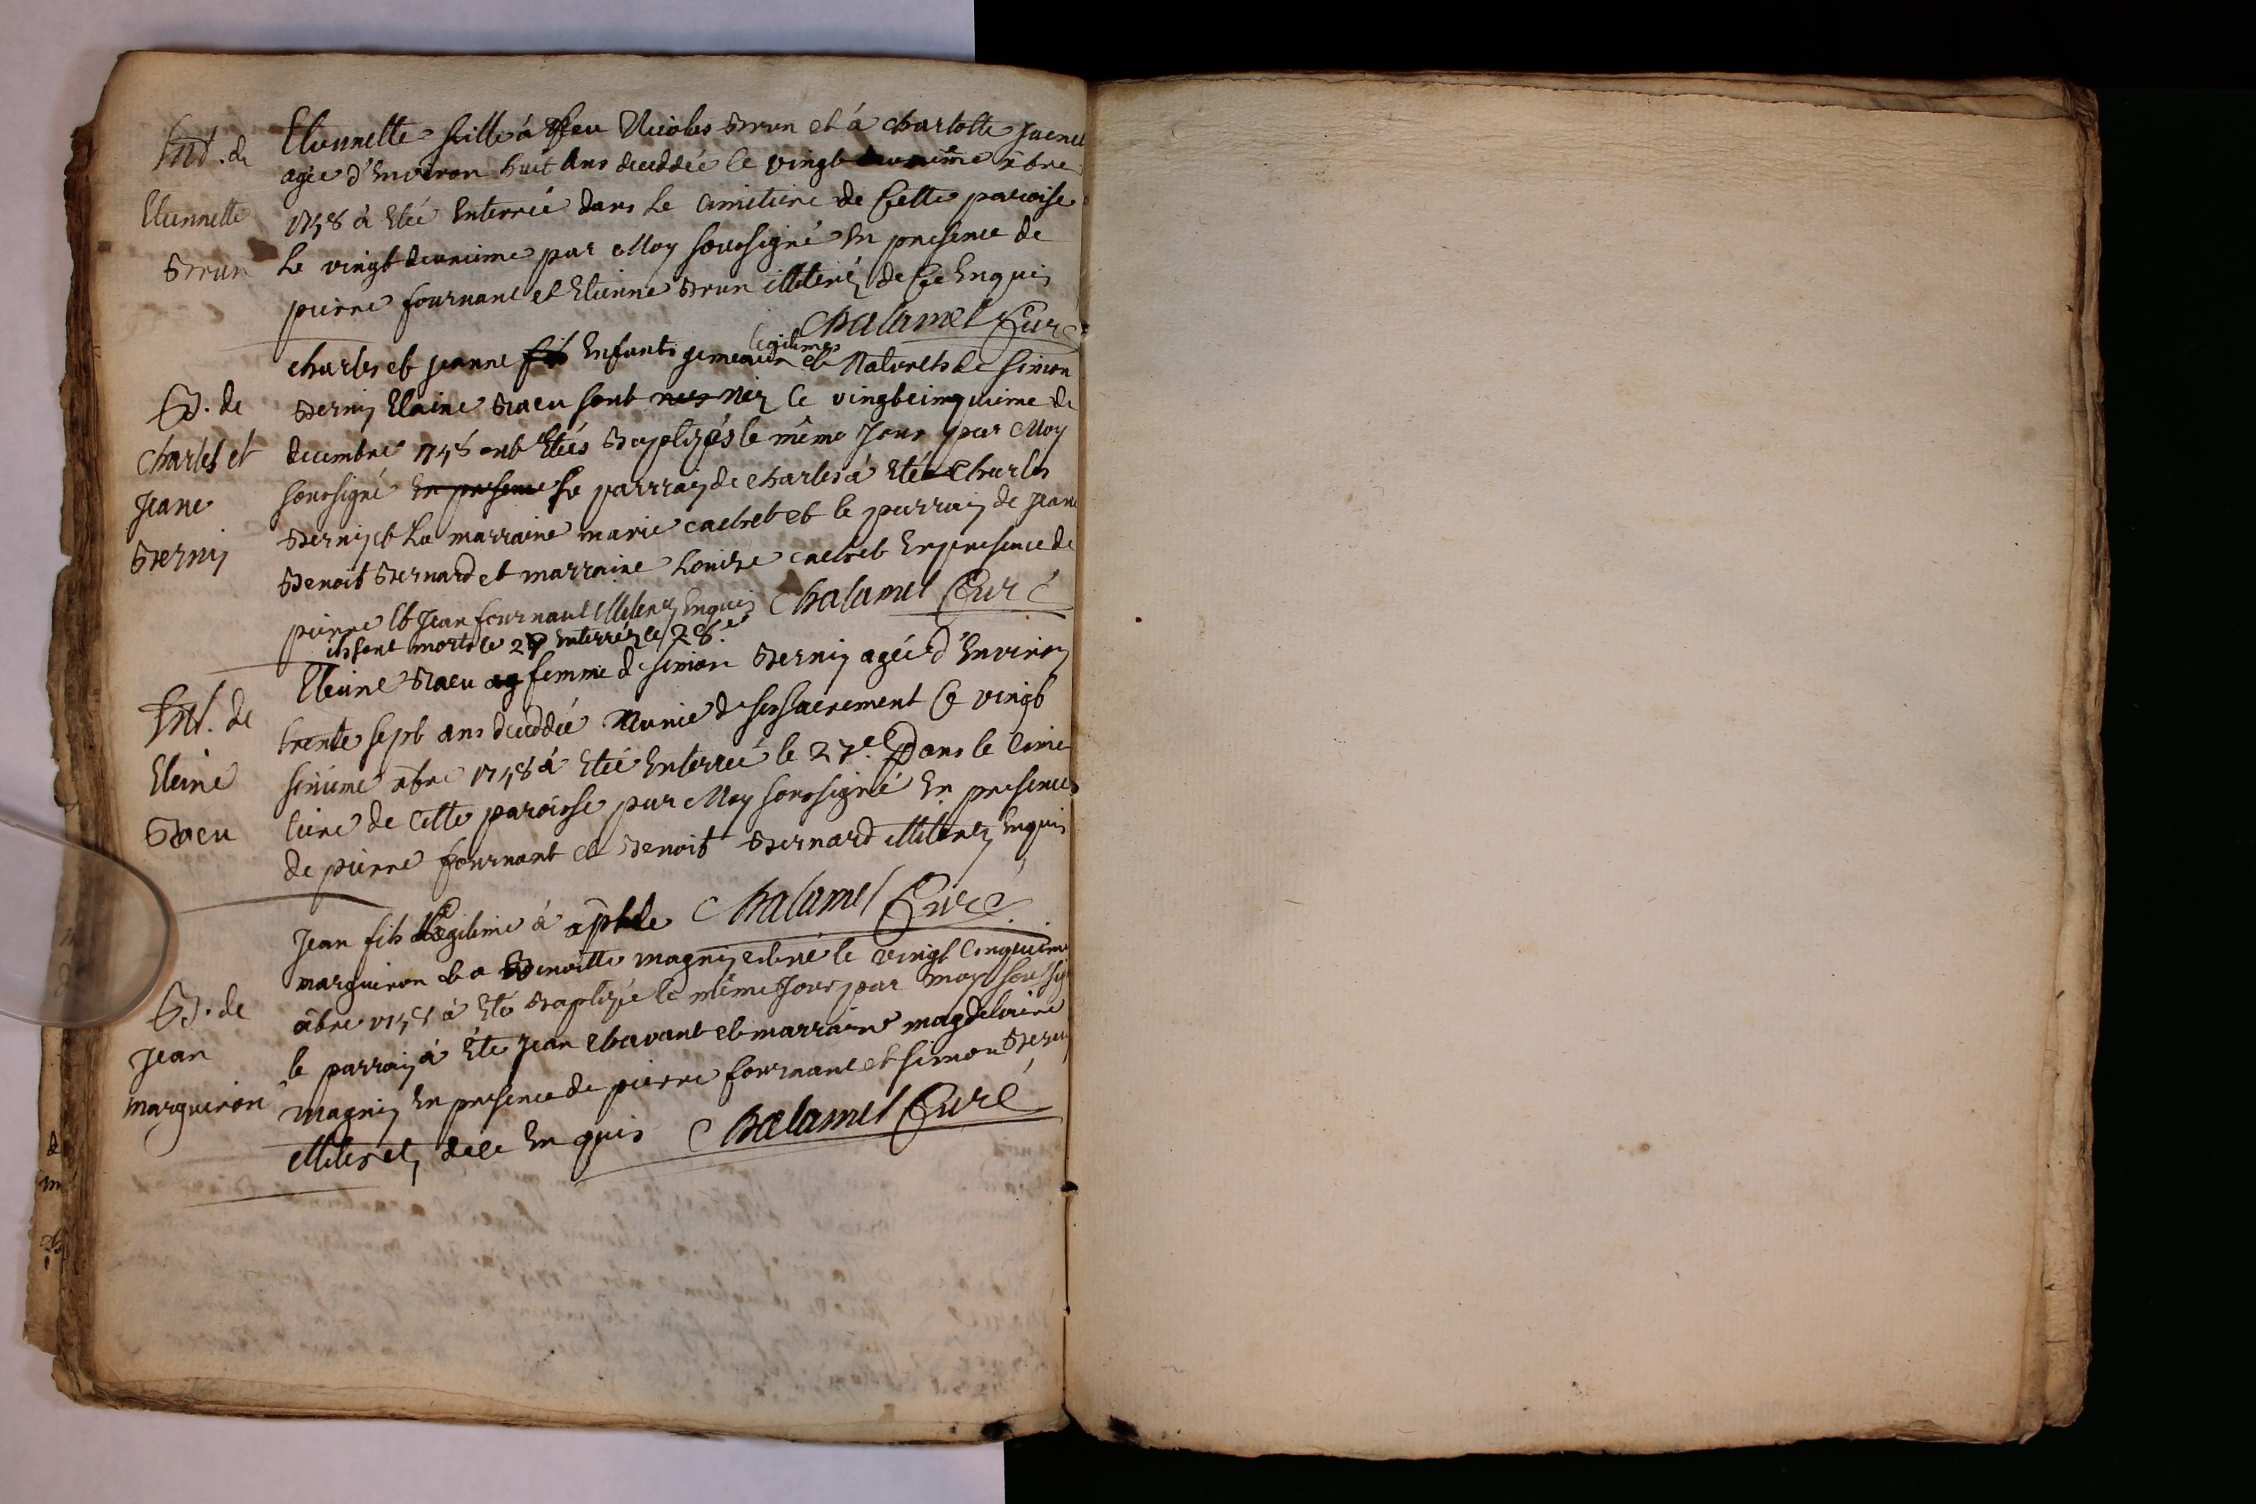 Ent. de
Etiennette
Brun
Etiennette fille à feu Nicolas Brun et à charlotte
agée d'Environ huit Ans decedée le vingt xbre
1758 à Etée Enterrée dans le Cimetiere de Cette paroisse
le vingt deuxieme par Moy soussigné En presence de
pierre fournant et Etienne Brun illiterés de Ce Enquis
Chalamel Curé
B. de
Charles et
Jeane
Bernin
charles et jeanne fils Enfants gemeaux legitimes et Naturels de simon
Bernin Elaine Baeu sont nes Nez le vingtcinquieme de
decembre 1758 ont Etées Baptizés le même Jour par Moy
soussigné En presence le parrain de charles à Eté Charles
Bernin et La marraine marie et le parrain de jeane
Benoit Bernard et marraine Louise En presence de
pierre et Jean fournant illiterez Enquis Chalamel Curé
ils sont morts le 27 Enterrés le 28.e
Ent. de
Eleine
Baeu
Eleine Baeu ag femme de simon Bernin agée d'Environ
trente sept ans decedée Munie de ses sacrement Ce vingt
sixieme xbre 1758 à Etée Enterrée le 27.e Dans le Cime
tiere de Cette paroisse par Moy soussigné En presence
de pierre fournant et Benoit Bernard illiterez Enquis
Chalamel Curé
B. de
Jean
marguiron
Jean fils legitime à
marguiron et a Benoitte magnin est né le vingt Cinquieme
xbre 1758 à Eté Baptizé le même Jour par moy
le parrain à Eté Jean chavant et marraine magdelaine
magnin En presence de pierre fournant et simon
illiterez de Ce En quis Chalamel Curé